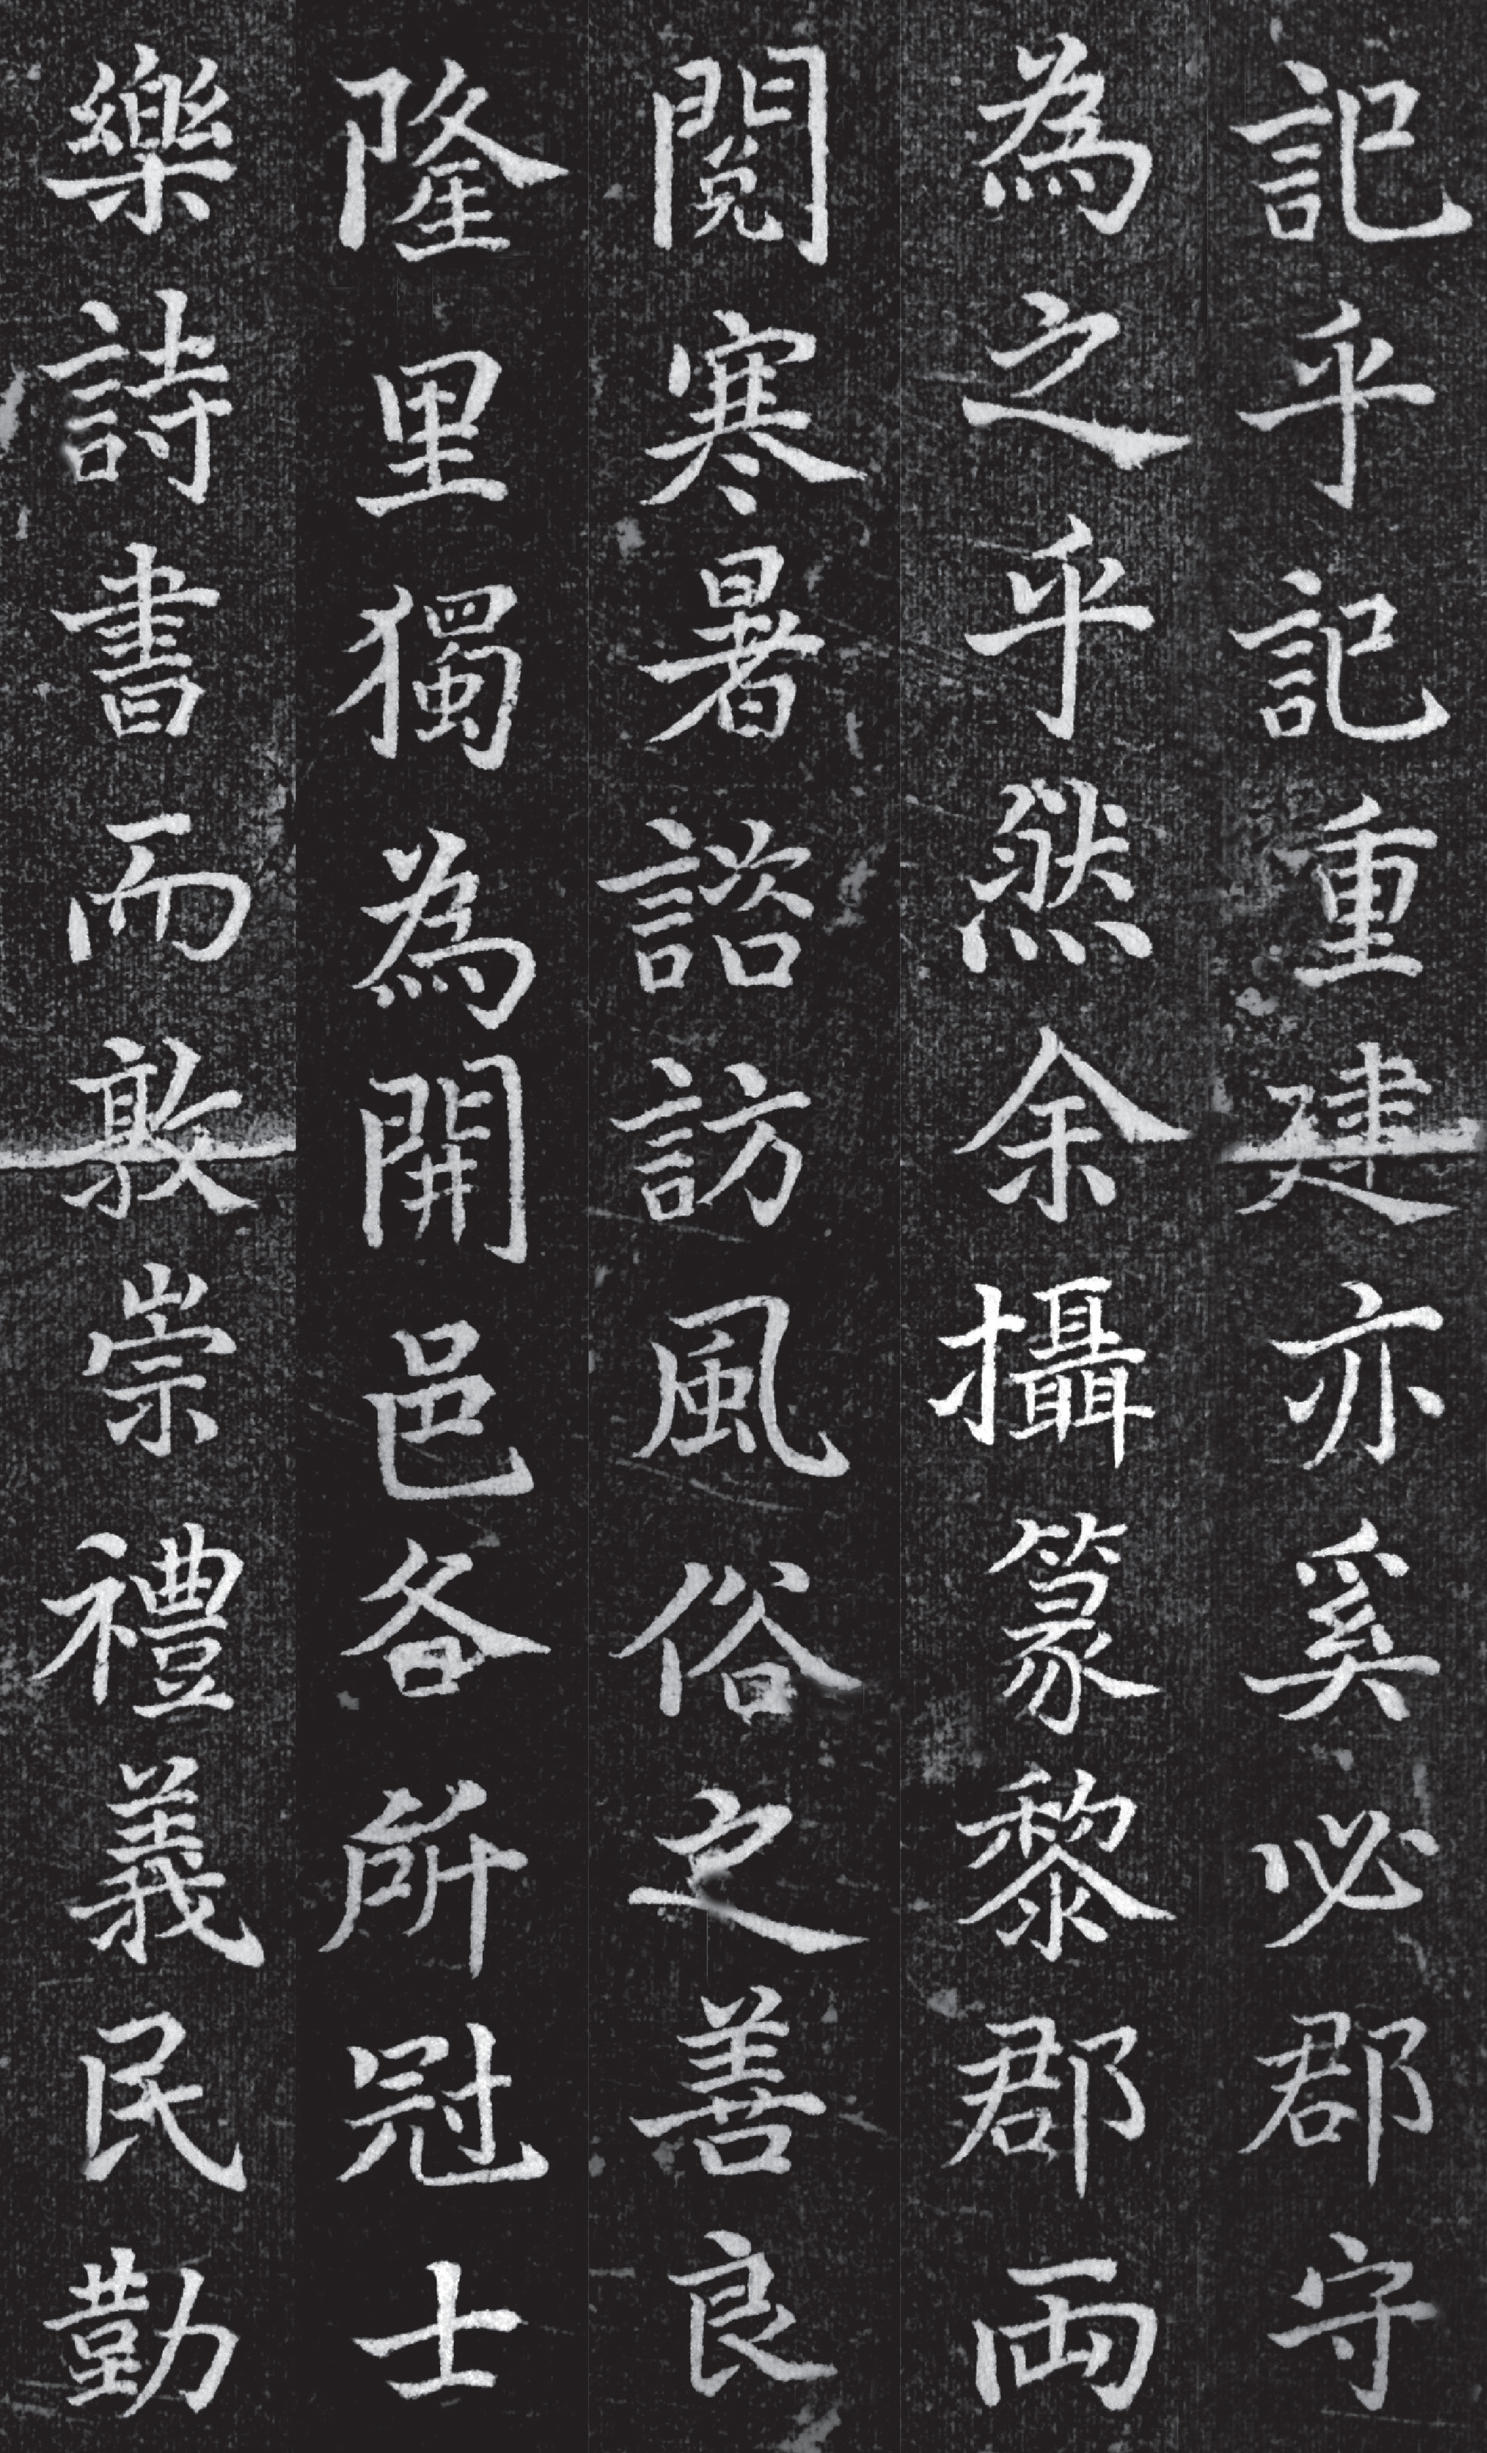 記乎記重建亦奚必郡守
為之乎然余攝篆黎郡両
閱寒暑諮訪風俗之善良
隆里獨為開邑各所冠士
樂詩書而敦崇禮義民勤